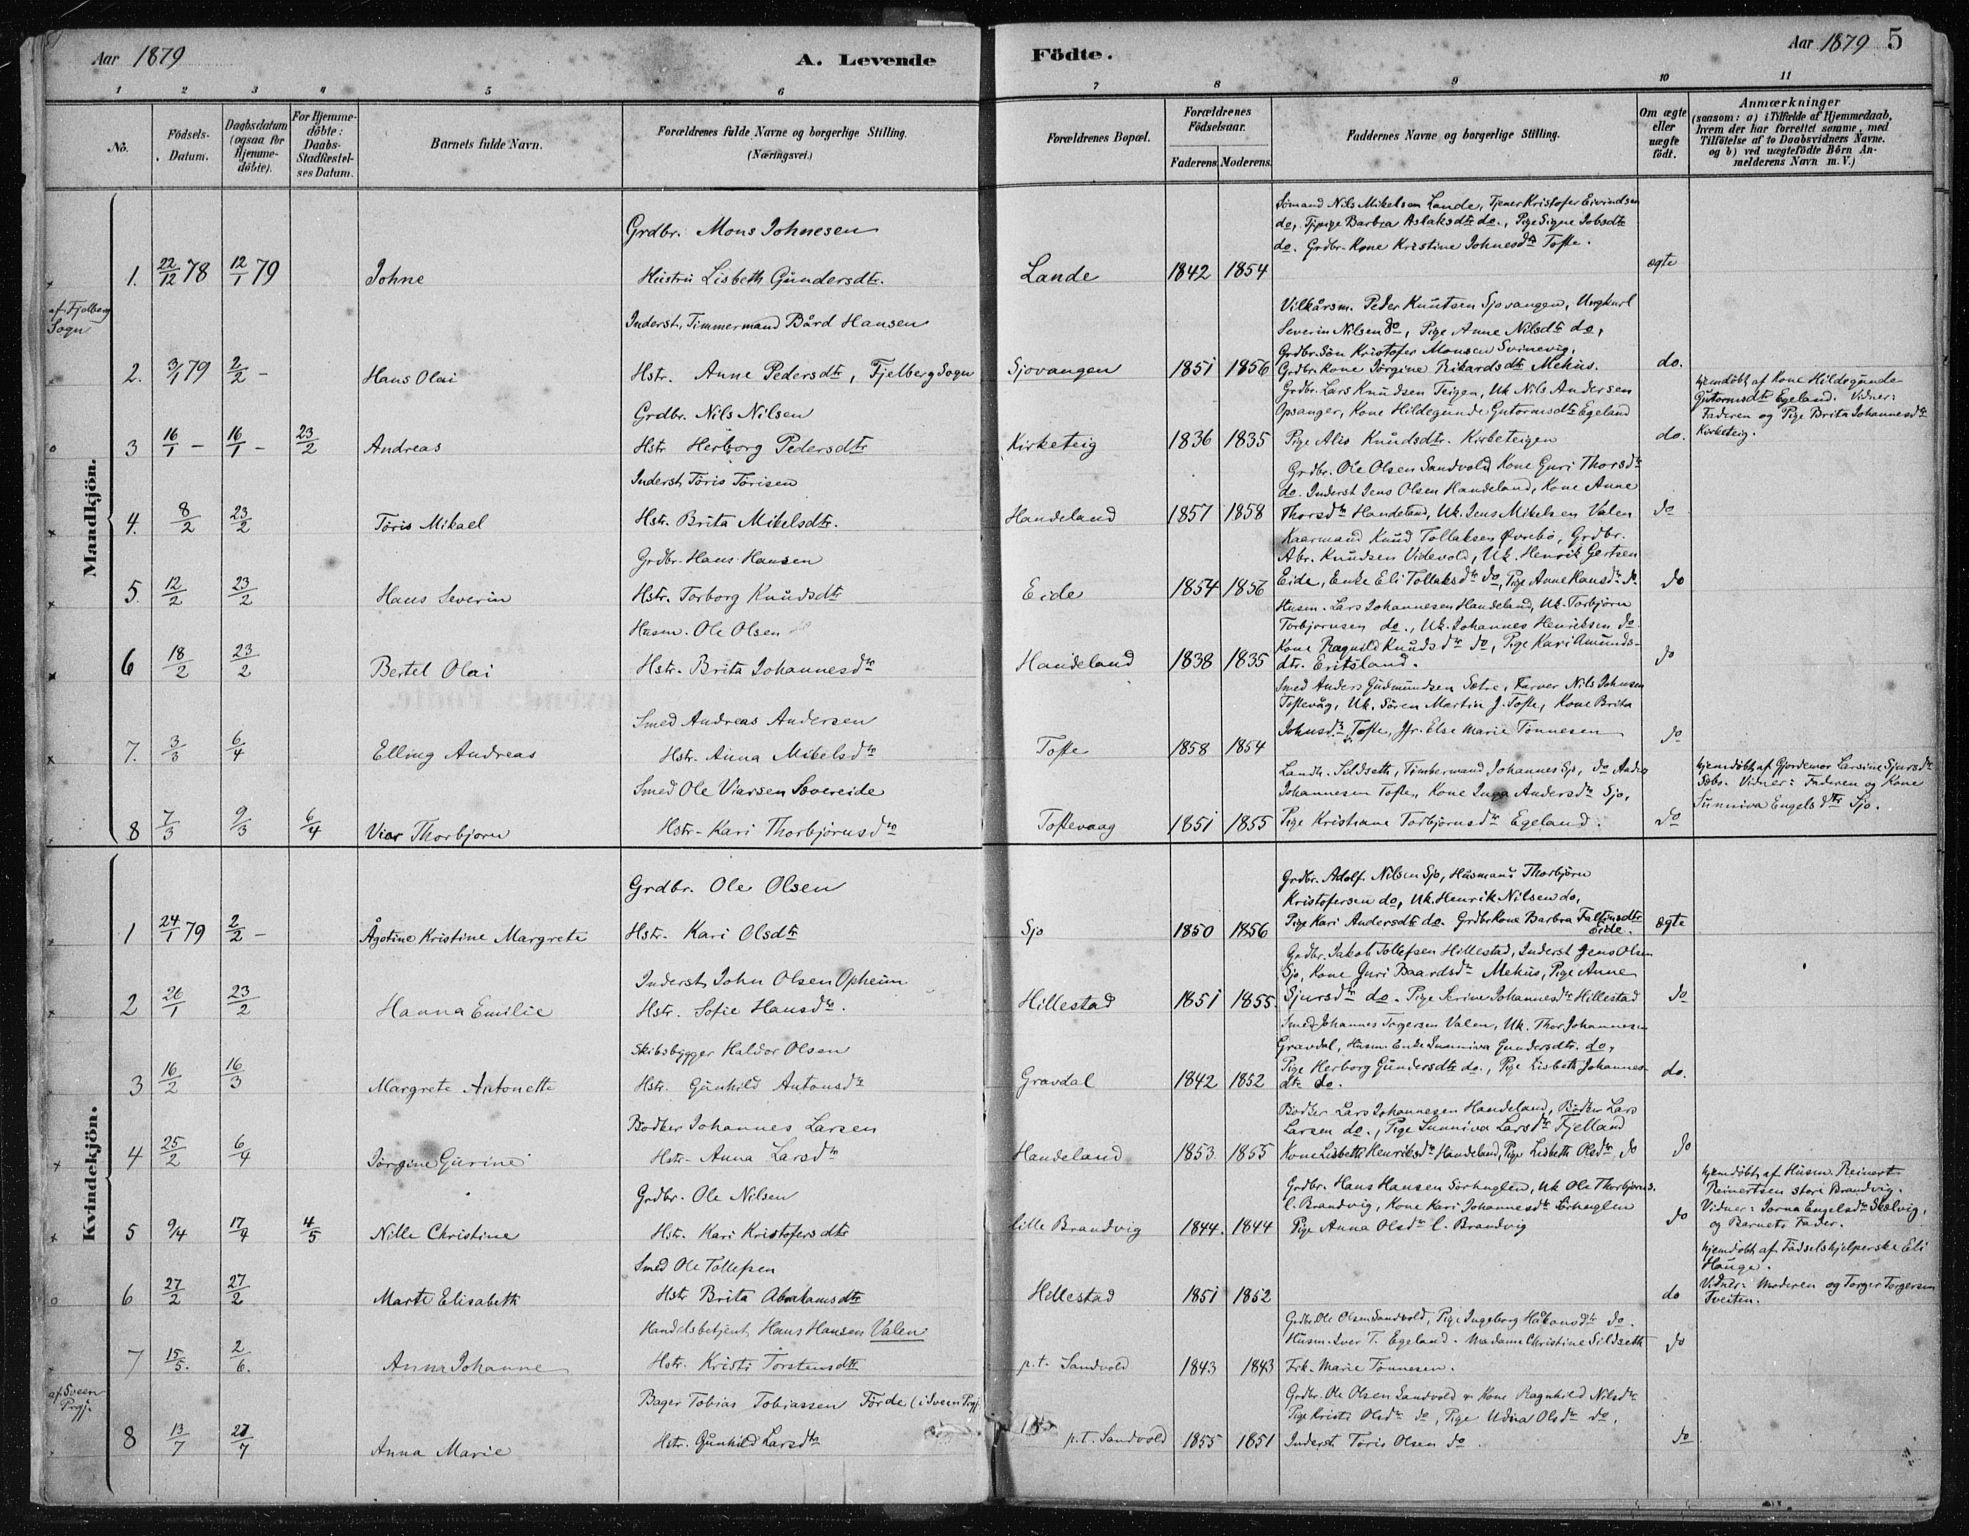 Aar 1879
A. Levende
Födte.
Aar 1879 5
1 2 3 4 5 6 7 8 9 10 11
No.
Födsels-Datum.
Daabsdatum (ogsaa for Hjemme-döbte).
For Hjemme-döbte: Daabs-Stadfæstel-ses Datum.
Barnets fulde Navn.
Forældrenes fulde Navne og borgerlige Stilling. (Næringsvei.)
Forældrenes Bopæl.
Forældrenes Födselsaar.
Faderens. Moderens.
Faddernes Navne og borgerlige Stilling.
Om ægte eller uægte födt.
Anmærkninger
(saasom: a) i Tilfælde af Hjemmedaab, hvem der har forrettet samme, med Tilföielse af to Daabsvidners Navne. og b) ved uægtefödte Börn An-melderens Navn m. V.)
Mandkjön.
Grdbr. Mons Johnesen
1. 22/12 78 12/1 79 Johne Hustru Lisbeth Gundersdtr. Lande 1842 1854 ægte
Sømand Nils Mikelsen Lande, Tjener Kristofer Eivindsen
do, Tjpige Barbra Aslaksdtr do., Pige Signe Jobsdtr
do. Grdbr. Kone Kristine Johnesdtr Tofte.
af Fjelberg Sogn
Inderst, Timmermand Bård Hansen
2. 3/1 79 2/2 - Hans Olai Hstr. Anne Pedersdtr, Fjelberg Sogn Sjovangen 1851 1856 do.
Vilkårsm. Peder Knutsen Sjovangen, Ungkarl
Severin Nilsen do, Pige Anne Nilsdtr do,
Grdbr. Søn Kristofer Monsen Svinevig,
Grdbr. Kone Jørgine Rikardsdtr Mehus.
Grdbr. Nils Nilsen
3 16/1 - 16/1 - 23/2 Andreas Hstr Herborg Pedersdtr Kirketeig 1836 1835 do.
Grdbr. Lars Knudsen Teigen, Uk Nils Andersen
Opsanger, Kone Hildegunde Gutormsdtr Egeland
Pige Alis Knudsdtr. Kirketeigen
hjemdøbt af Kone Hildegunde
Gutormsdtr Egeland. Vidner:
Faderen og Pige Brita Johannesdtr
Kirketeig.
Inderst Tøris Tørisen
4. 8/2 23/2 Tøris Mikael Hstr. Brita Mikelsdtr. Handeland 1857 1858 do
Grdbr. Ole Olsen Sandvold Kone Guri Thorsdtr
do. Inderst Jens Olsen Handeland, Kone Anne
Thorsdtr Handeland, Uk. Jens Mikelsen Valen
Grdbr. Hans Hansen
5. 12/2 23/2 Hans Severin Hstr. Torborg Knudsdtr Eide 1854 1856 do
Kaarmand Knud Tollaksen Øvrebø, Grdbr.
Abr. Knudsen Videvold, Uk. Henrik Gertsen
Eide, Enke Eli Tollaksdtr do, Pige Anne Hansdtr do
Husm. Ole Olsen
6 18/2 23/2 Bertel Olai Hstr. Brita Johannesdtr Handeland 1838 1835 do
Husm. Lars Johannesen Handeland, Uk. Torbjørn
Torbjørnsen do., Uk. Johannes Henriksen do.
Kone Ragnild Knudsdtr do, Pige Kari Amunds-
dtr. Eritsland.
Smed Andreas Andersen
7. 3/3 6/4 Elling Andreas Hstr. Anna Mikelsdtr Tofte 1858 1854 do
Smed Anders Gudmundsen Sætre, Farver Nils Johnsen
Toftevåg, Uk. Søren Martin J. Tofte, Kone Brita
Johnsdtr Tofte, Jfr. Else Marie Tønnesen
Smed Ole Viarsen Søvereide
8 7/3 9/3 6/4 Viar Thorbjørn Hstr. Kari Thorbjørnsdtr Toftevaag 1851 1855 do
Landh. Sildseth, Timbermand Johannes Sjo, do Anders
Johannesen Tofte, Kone Inga Andersdtr Sjo,
Pige Kristiane Torbjørnsdtr Egeland.
hjemdøbt af Gjordemor Larsine Sjursdtr
Sæbø. Vidner: Faderen og Kone
Sunniva Engelsdtr Sjo.
Kvindekjön.
Grdbr. Ole Olsen
1 24/1 79 2/2 - Ågotine Kristine Margrete Hstr. Kari Olsdtr Sjo 1850 1856 ægte
Grdbr. Adolf Nilsen Sjo, Husmand Thorbjørn
Kristofersen do, Uk. Henrik Nilsen do,
Pige Kari Andersdtr do. Grdbr Kone Barbra Faltinsdtr
Eide.
Inderst John Olsen Opheim
2 26/1 23/2 Hanna Emilie Hstr. Sofie Hansdtr. Hillestad 1851 1855. do
Grdbr. Jakob Tollefsen Hillestad, Inderst Jens Olsen
Sjo, Kone Guri Baardsdtr Mehus, Pige Anne
Sjursdtr do. Pige Serine Johannesdtr Hillestad
Skibsbygger Haldor Olsen
3 16/2 16/3 Margrete Antonette Hstr. Gunhild Antonsdtr Gravdal 1842 1852 do.
Smed Johannes Torgersen Valen, Uk. Thor Johannesen
Gravdal, Husm. Enke Sunniva Gundersdtr. do,
Pige Herborg Gundersdtr do., Pige Lisbeth Johannes-
dtr do.
Bødker Johannes Larsen
4 25/2 6/4 Jørgine Gurine Hstr. Anna Larsdtr Handeland 1853 1855 do
Bødker Lars Johannesen Handeland, Bødker Lars
Larsen do., Pige Sunniva Larsdtr Fjelland
Kone Lisbeth Henriksdtr Handeland, Pige Lisbeth Olsdtr do
Grdbr. Ole Nilsen
5 9/4 17/4 4/5 Nille Christine Hstr. Kari Kristofersdtr lille Brandvig 1844. 1844 do
Grdbr. Hans Hansen Sørhuglen, Uk Ole Thorbjørns.
l. Brandvig, Kone Kari Johannesdtr Sørhuglen
Pige Anna Olsdtr l. Brandvig
hjemdøbt af Husm. Reinert
Reinertsen store Brandvig.
Vidner: Jorna Engelsdtr Skælvig,
og Barnets Fader.
Smed Ole Tollefsen
6 27/2 27/2 Marte Elisabeth Hstr Brita Abrahamsdtr Hillestad 1851 1852 do
hjemdøbt af Fødselshjelperske Eli
Hauge.
Vidner: Moderen og Torger Torgersen
Tveiten.
Handelsbetjent Hans Hansen Valen
7 15/5. 2/6. Anna Johanne Hstr. Kristi Torstensdtr p.t. Sandvold 1843 1843 do
Grdbr. Ole Olsen Sandvold, Pige Ingeborg Håkonsdtr do.
Husm. Iver T. Egeland. Madame Christine Sildseth
Frk. Marie Tønnesen.
af Sveen Prgj.
Bager Tobias Tobiassen Förde (i Sveen Prgj.
8 13/7 27/7 Anna Marie Hstr. Gunhild Larsdtr p.t. Sandvold 1855 1851 do
Grdbr. Ole Olsen Sandvold & Kone Ragnhild Nilsdtr
Pige Kristi Olsdtr do, Pige Udna Olsdtr do,
Inderst Tøris Olsen do.